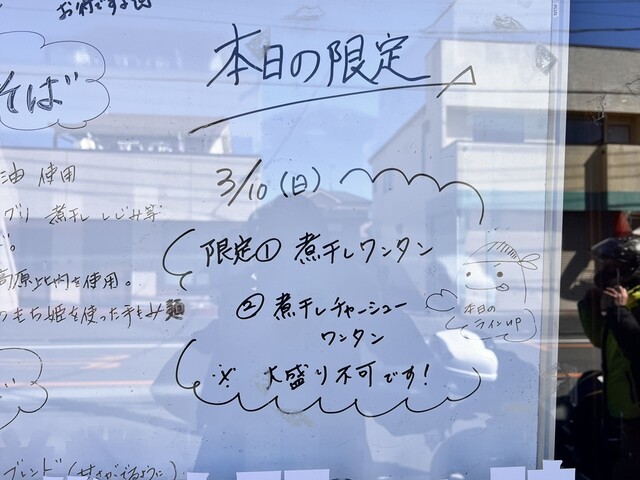 本日の限定
そば
3/10(日)
油 使用
グリ 煮干し しじみ等
限定① 煮干しワンタン
高原比内を使用。
② 煮干しチャーシュー
ワンタン
もち姫を使った手もみ麺
本日の
ラインup
※ 大盛り不可です!
ブレンド(甘さがでるように)